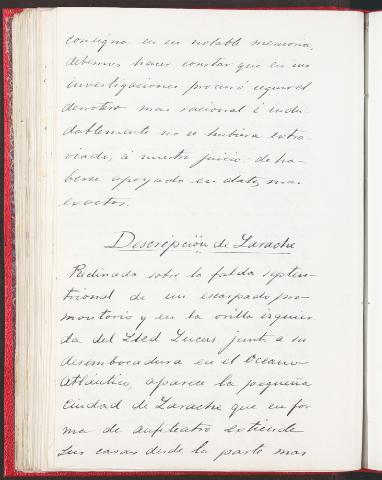 consigna en su notable memoria,
debemos hacer constar que en sus
investigaciones procuró seguir el
derrotero mas racional é indu-
dablemente no se hubiera extra-
viado, á nuestro juicio, de ha-
berse apoyado en datos mas
exactos.
Descripción de Larache
Reclinada sobre la falda septen-
trional de un escarpado pro-
montorio y en la orilla izquier
da del Lucus junto a su
desembocadura en el Oceano
Atlántico, aparece la pequeña
Ciudad de Larache que en for
ma de anfiteatro extiende
sus casas desde la parte mas